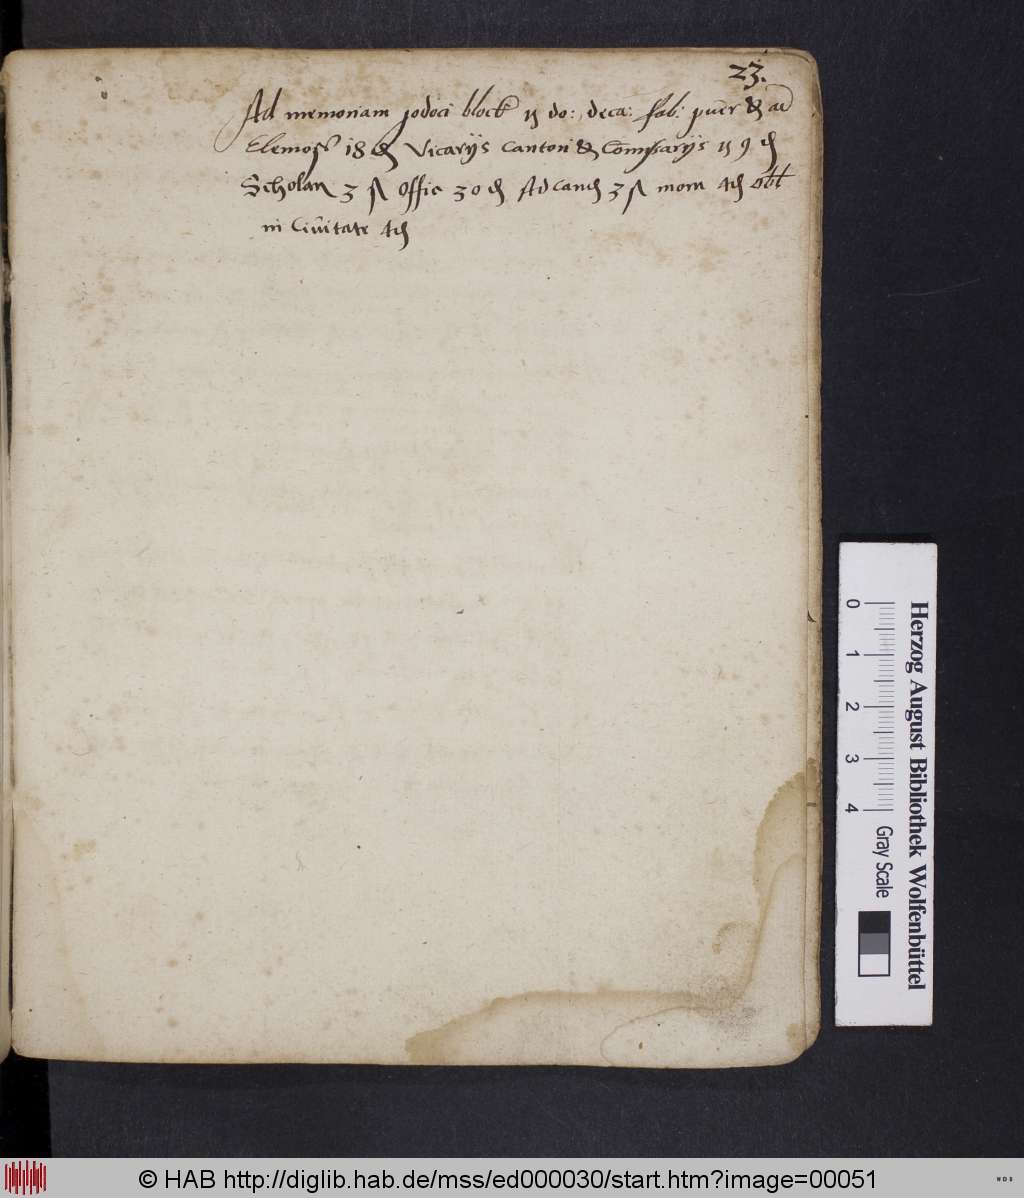 23.
Ad memoriam jodoci block ij do: deca: fab: puer &
Elemos 18 ₰ Vicarijs cantori & Com̄issarijs ij 9 ₰
Scholari 3 ß Offic 30 ₰ Ad cand 3 ß mom 4 ₰ obl
in Civitate 4 ₰
Herzog August Bibliothek Wolfenbüttel
0 1 2 3 4
Gray Scale
© HAB http://diglib.hab.de/mss/ed000030/start.htm?image=00051